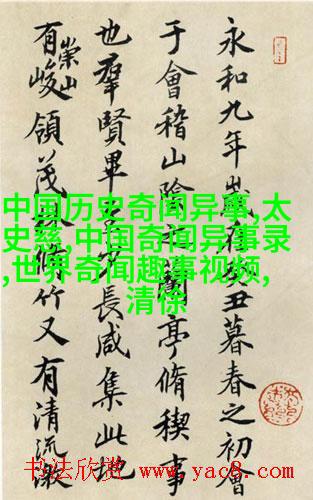 永和九年歲在癸丑暮春之初會
于會稽山陰之蘭亭脩稧事
也羣賢畢至少長咸集此地
有崇山峻領茂林脩竹又有清流激
中国历史奇闻异事,太
史慈,中国奇闻异事录
,世界奇闻趣事视频,
清徐
书法欣赏 www.yac8.com